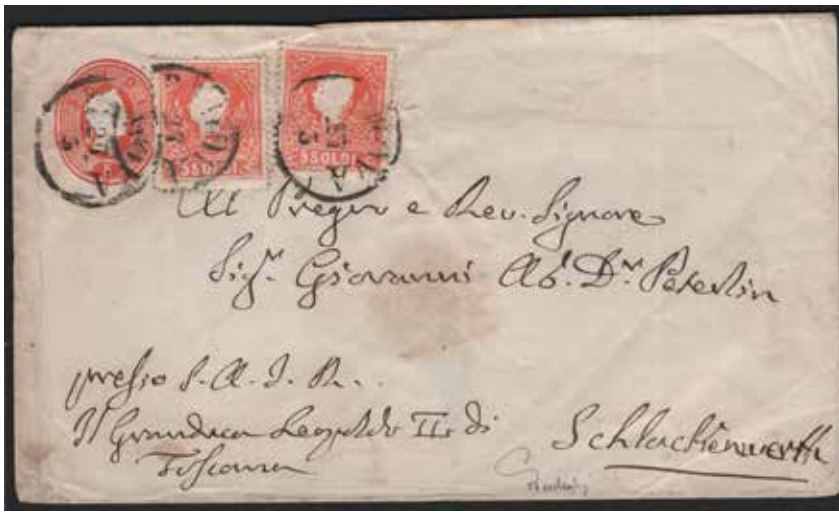 5 SOLDI
5 SOLDI
Al Pregio e Rev. Signore
Sigr. Giovanni Ab. Dr. Peterlin
presso S. A. I. R.
Il Granduca Leopoldo II di
Toscana
Schlackenwerth